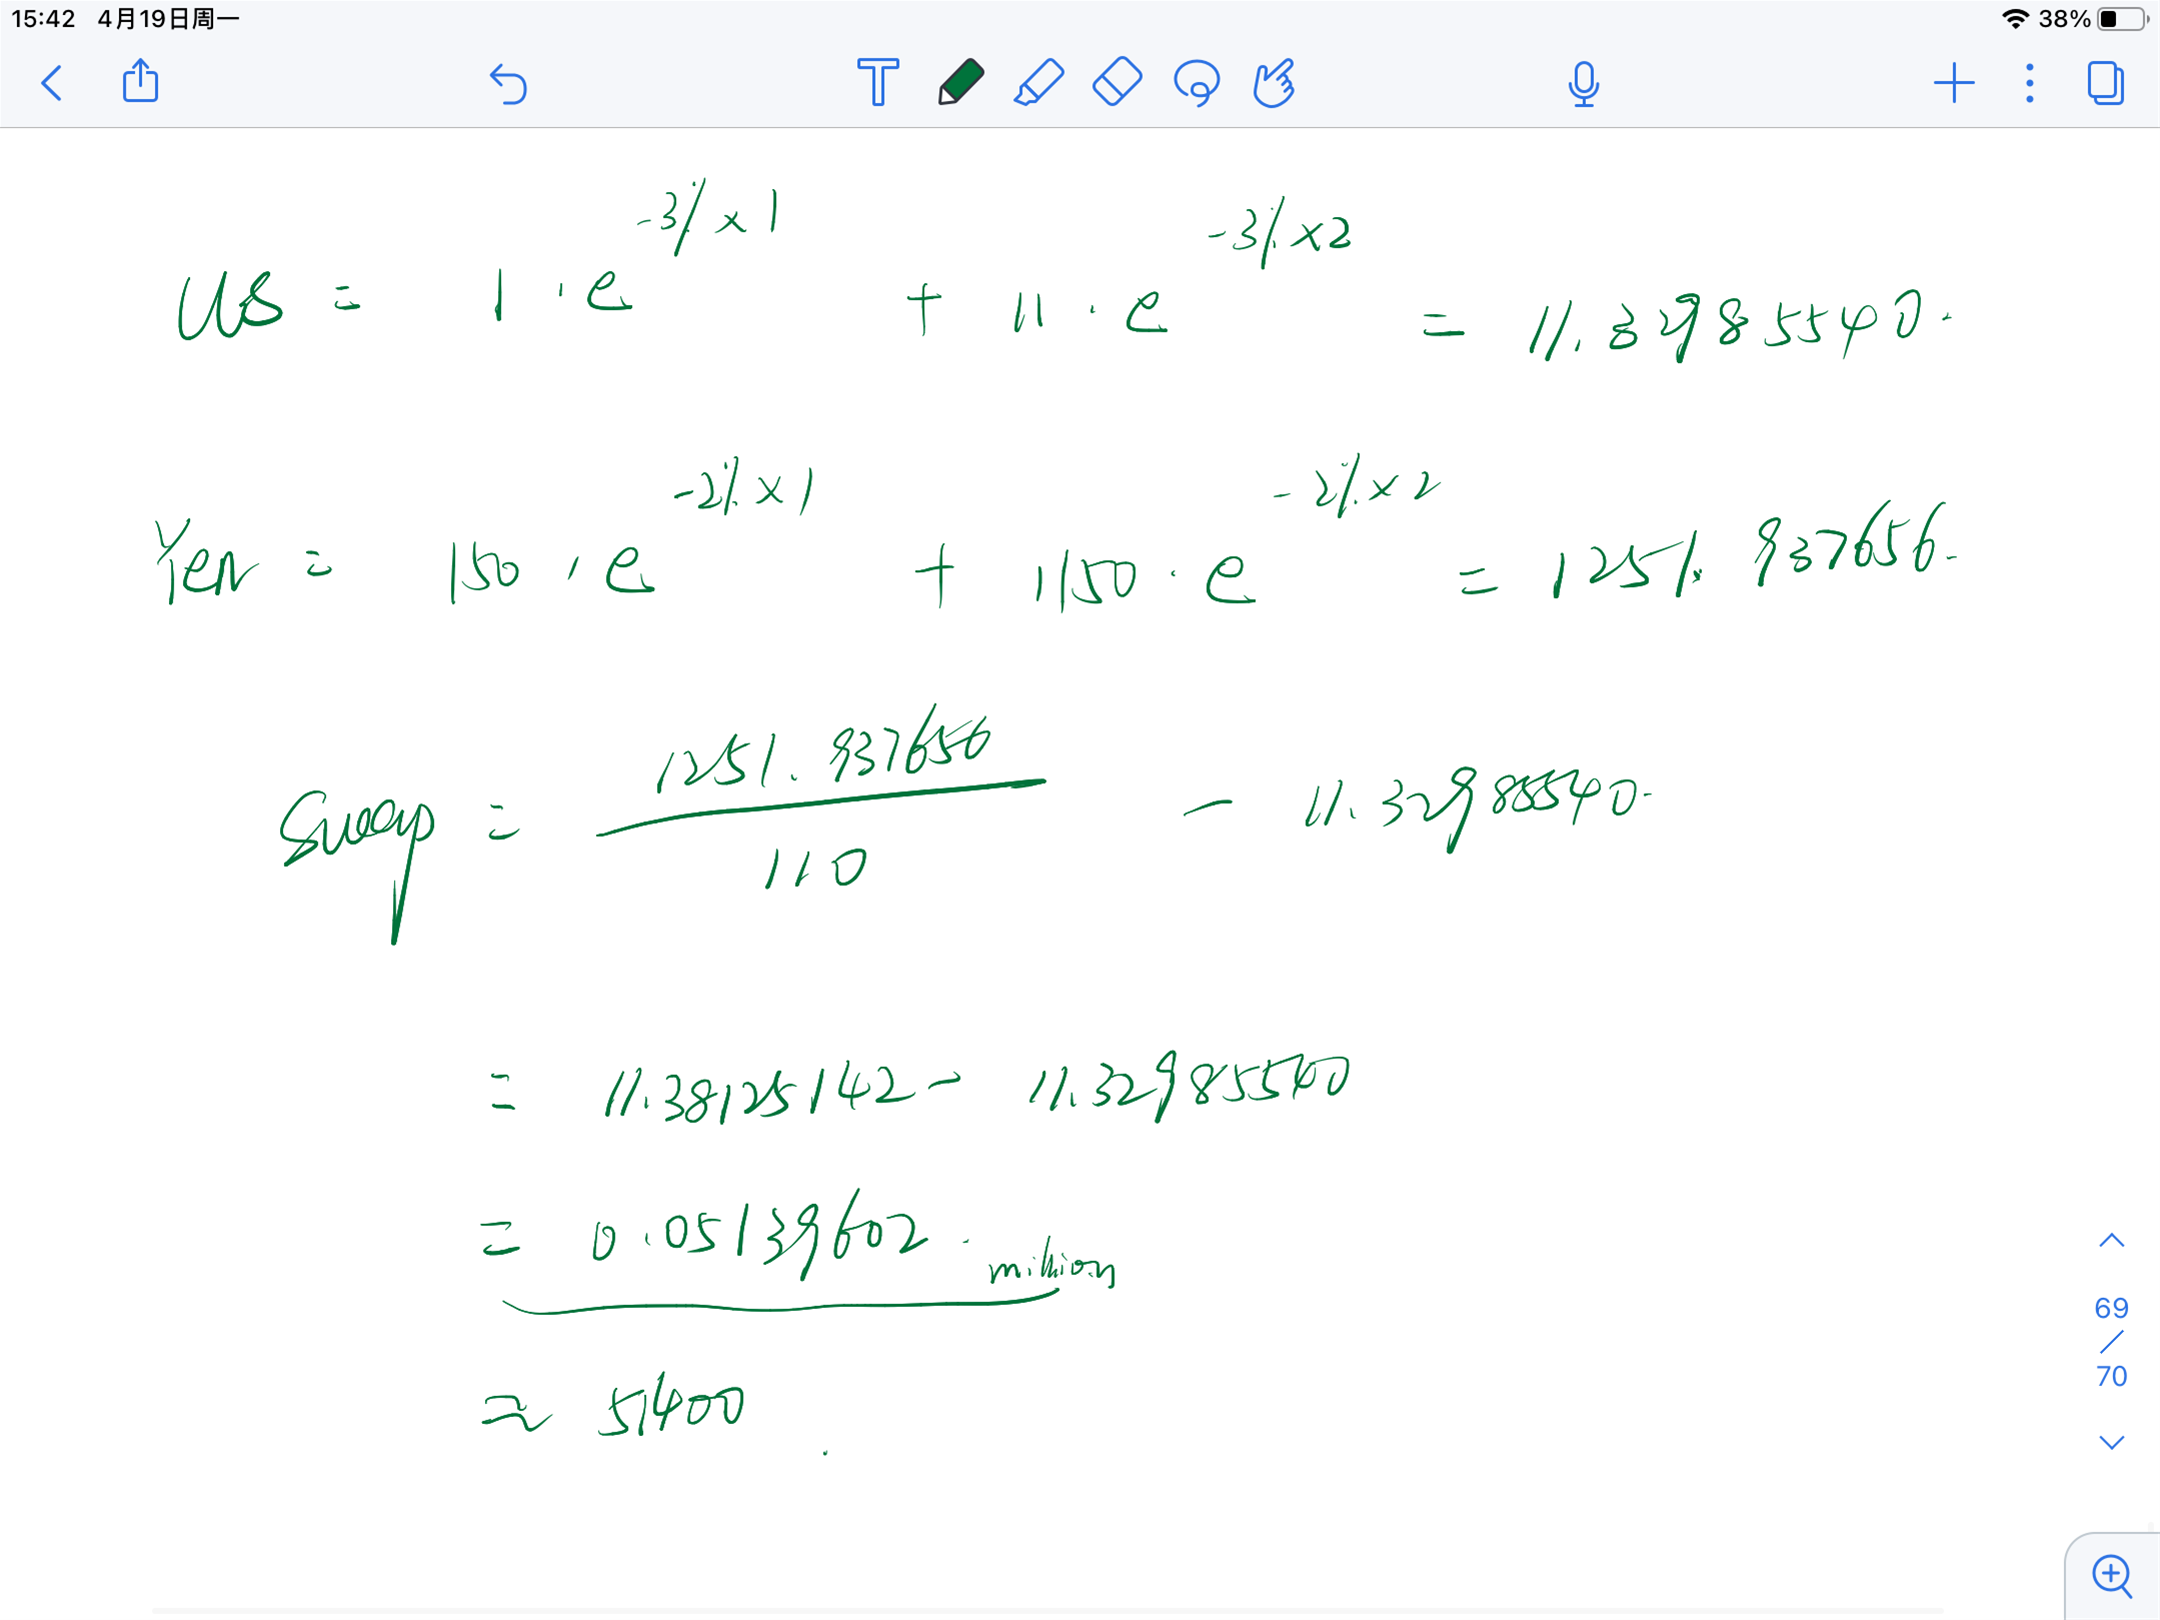 15:42 4月19日周一 38%
US = 1 · e^{-3% × 1} + 11 · e^{-3% × 2} = 11.32985540.
Yen = 150 · e^{-2% × 1} + 1150 · e^{-2% × 2} = 1251.937656.
Swap = 1251.937656 / 110 - 11.32985540.
= 11.38125142 - 11.32985540
= 0.05139602. million
≈ 51400.
69
/
70